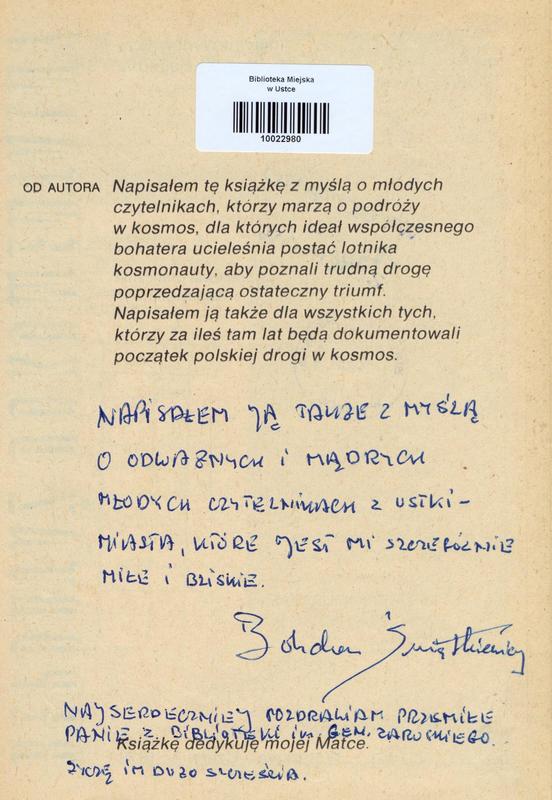 Biblioteka Miejska
w Ustce
10022980
OD AUTORA Napisałem tę książkę z myślą o młodych
czytelnikach, którzy marzą o podróży
w kosmos, dla których ideał współczesnego
bohatera ucieleśnia postać lotnika
kosmonauty, aby poznali trudną drogę
poprzedzającą ostateczny triumf.
Napisałem ją także dla wszystkich tych,
którzy za ileś tam lat będą dokumentowali
początek polskiej drogi w kosmos.
NAPISAŁEM JĄ TAKŻE Z MYŚLĄ
O ODWAŻNYCH I MĄDRYCH
MŁODYCH CZYTELNIKACH Z USTKI –
MIASTA, KTÓRE JEST MI SZCZEGÓLNIE
MIŁE I BLISKIE.
Bohdan Świątkiewicz
NAJSERDECZNIEJ POZDRAWIAM PRZEMIŁE
PANIE Z BIBLIOTEKI IM. GEN. ZARUSKIEGO.
Książkę dedykuję mojej Matce.
ŻYCZĘ IM DUŻO SZCZĘŚCIA.